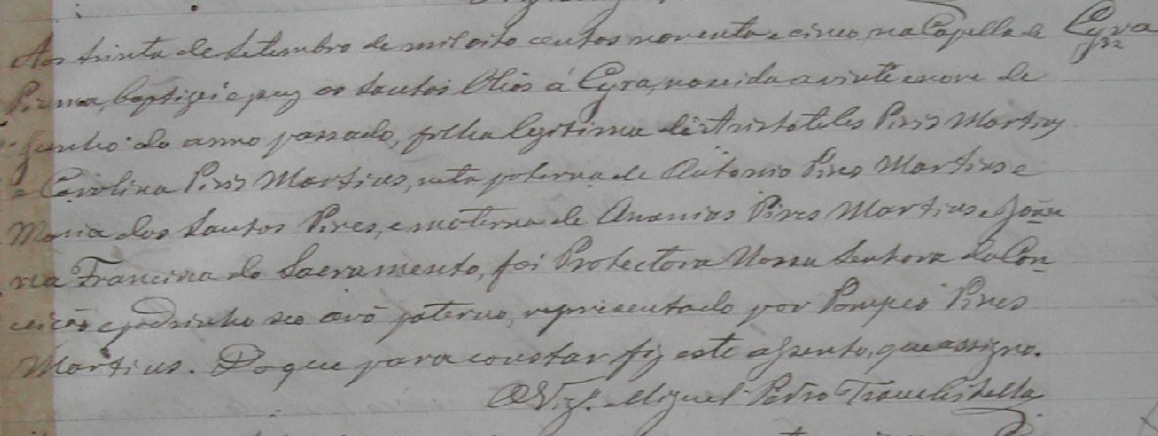 Aos trinta de Setembro de mil oito centos noventa e cinco na Capella de Cyra
Pirma, baptizei e puz os Santos Olios á Cyra, nascida a vinte e nove de
Junho do anno passado, filha legitima de Aristoteles Pires Martins
e Carolina Pires Martins, neta paterna de Antonio Pires Martins e
Maria dos Santos Pires, e materna de Ananias Pires Martins e Joan
na Francisca do Sacramento, foi Protectora Nossa Senhora da Con
ceição e padrinho seo avô paterno, representado por Pompeo Pires
Martins. Do que para constar fiz este assento, que assigno.
O Vigr. Miguel Pedro